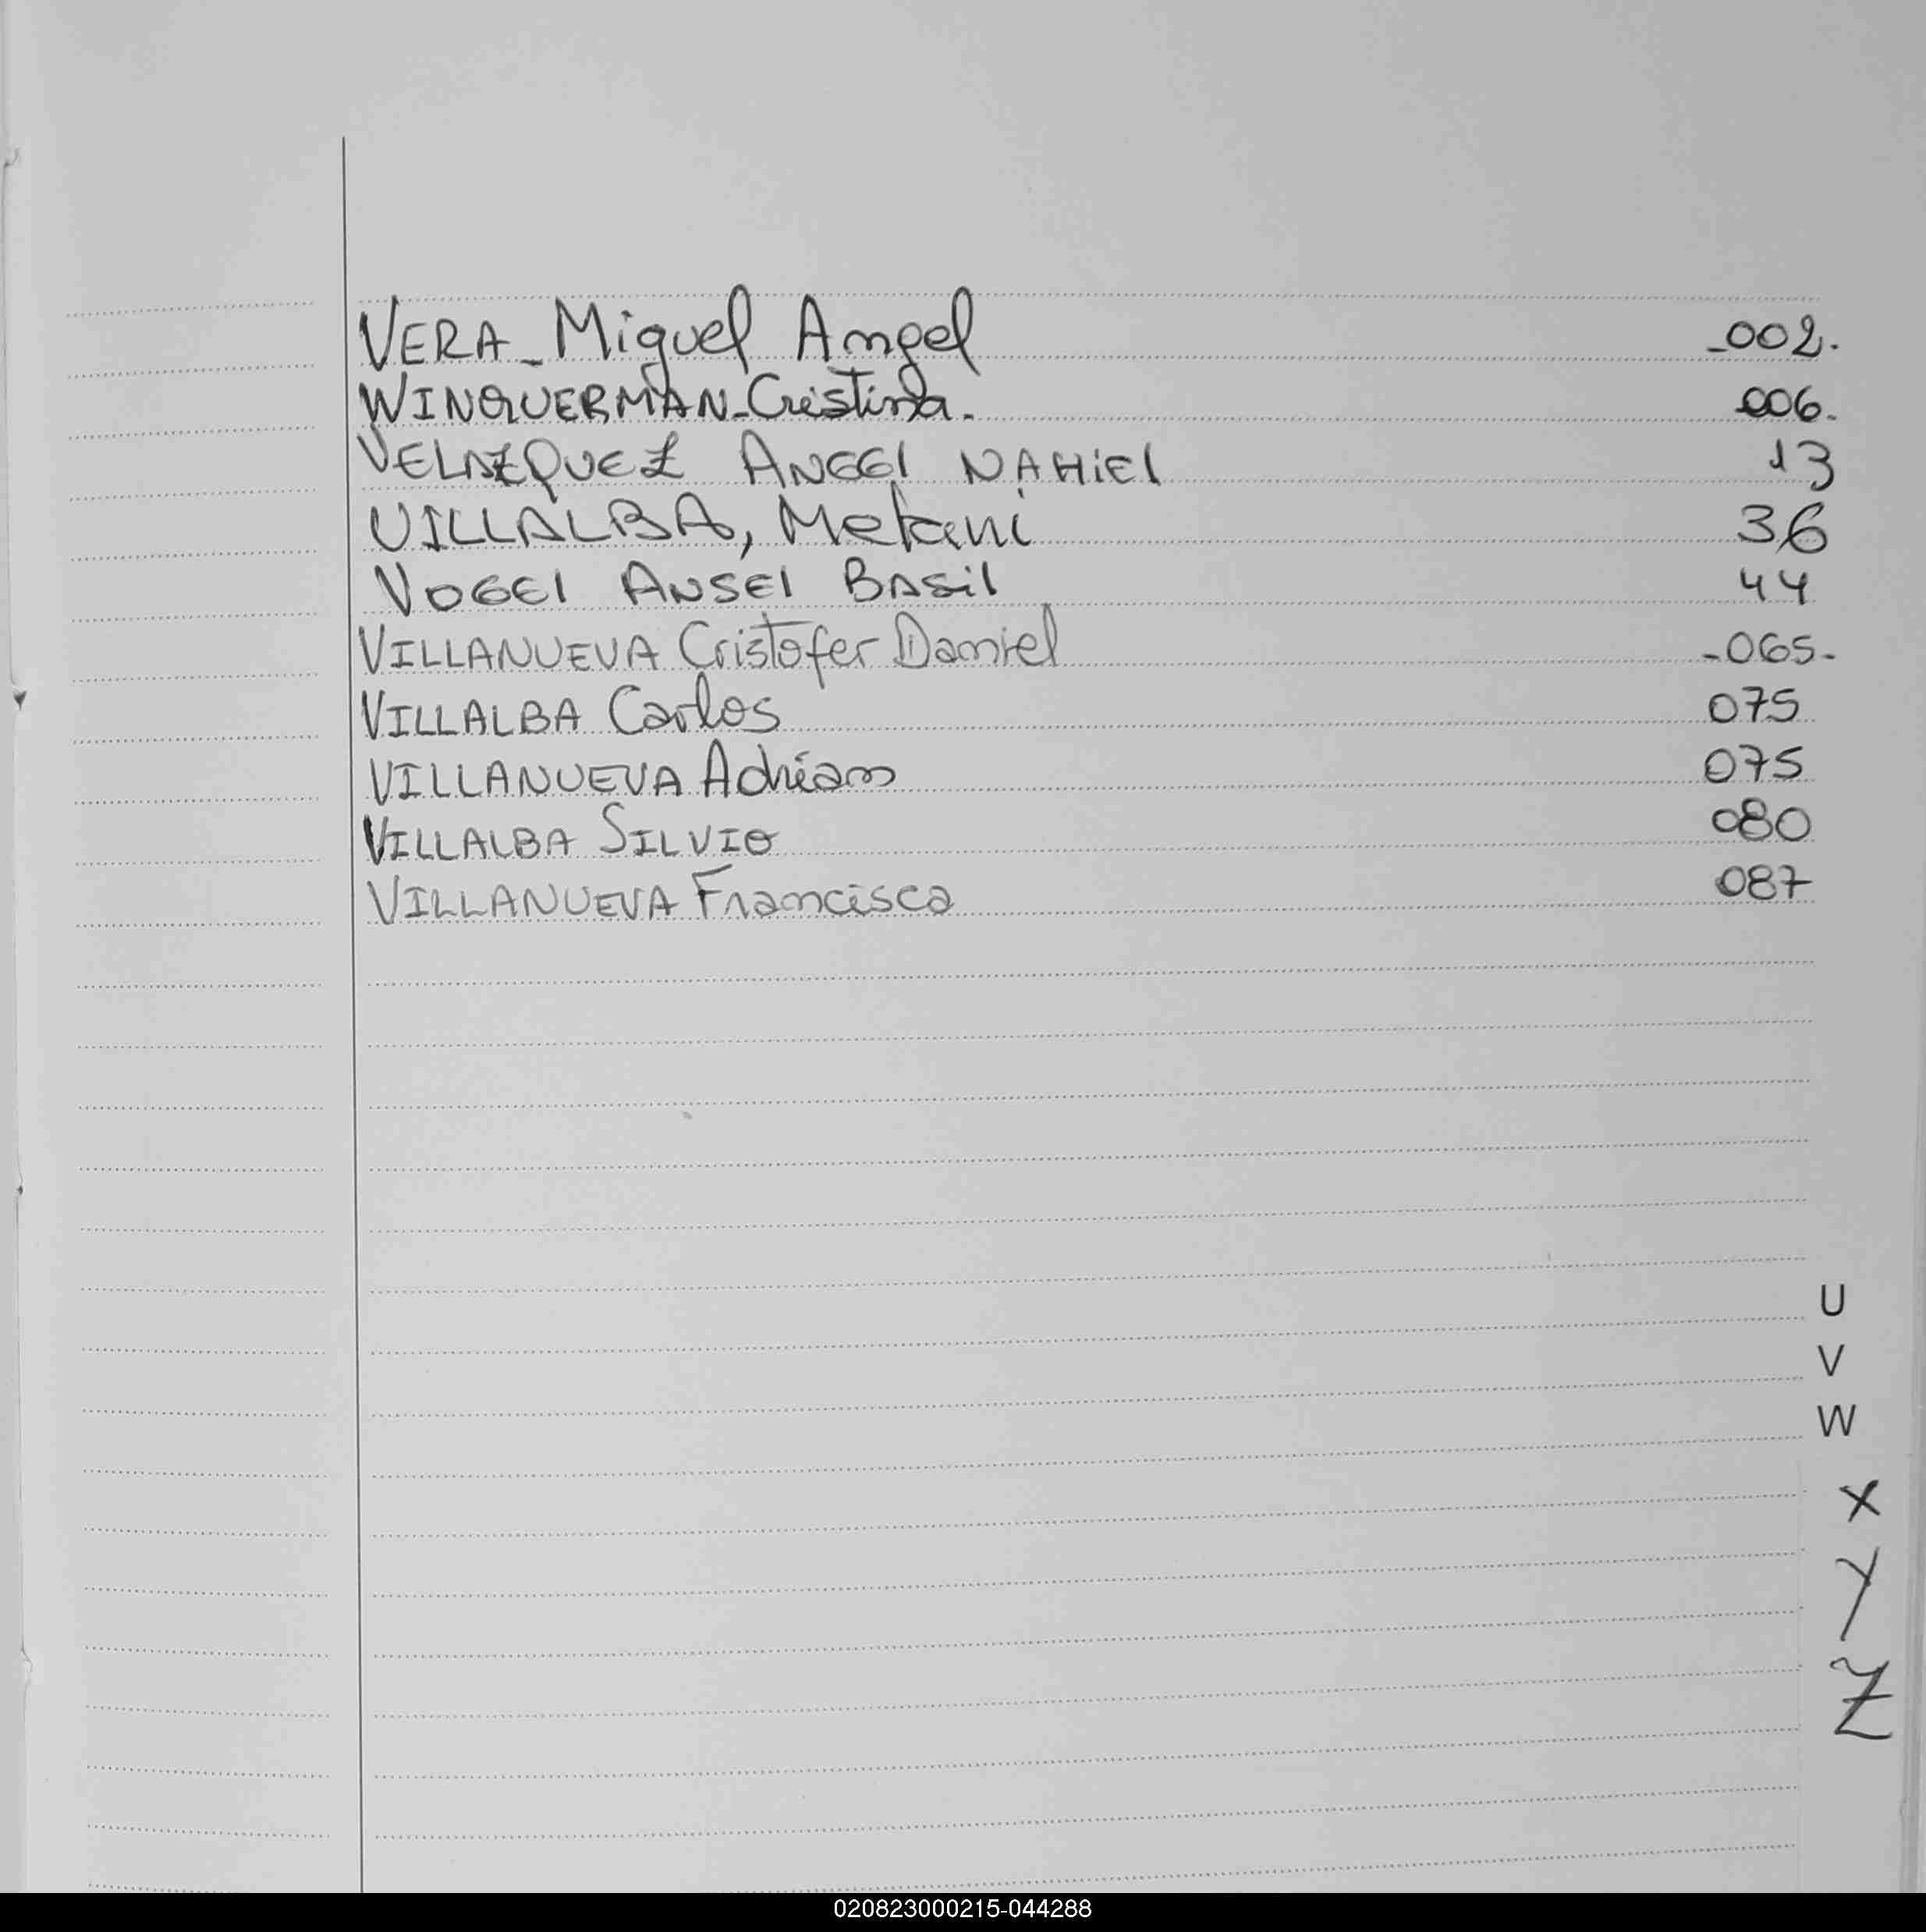 VERA_Miguel Angel _002.
WINQUERMAN_Cristina. 006.
VELAZQUEZ ANGEl NAHiEl 13
VILLALBA, Melani 36
VOGEl ANSEl BASil 44
VILLANUEVA Cristofer Daniel -065-
VILLALBA Carlos 075
VILLANUEVA Adrian 075
VILLALBA SILVIO 080
VILLANUEVA Francisca 087
U
V
W
X
Y
Z
020823000215-044288